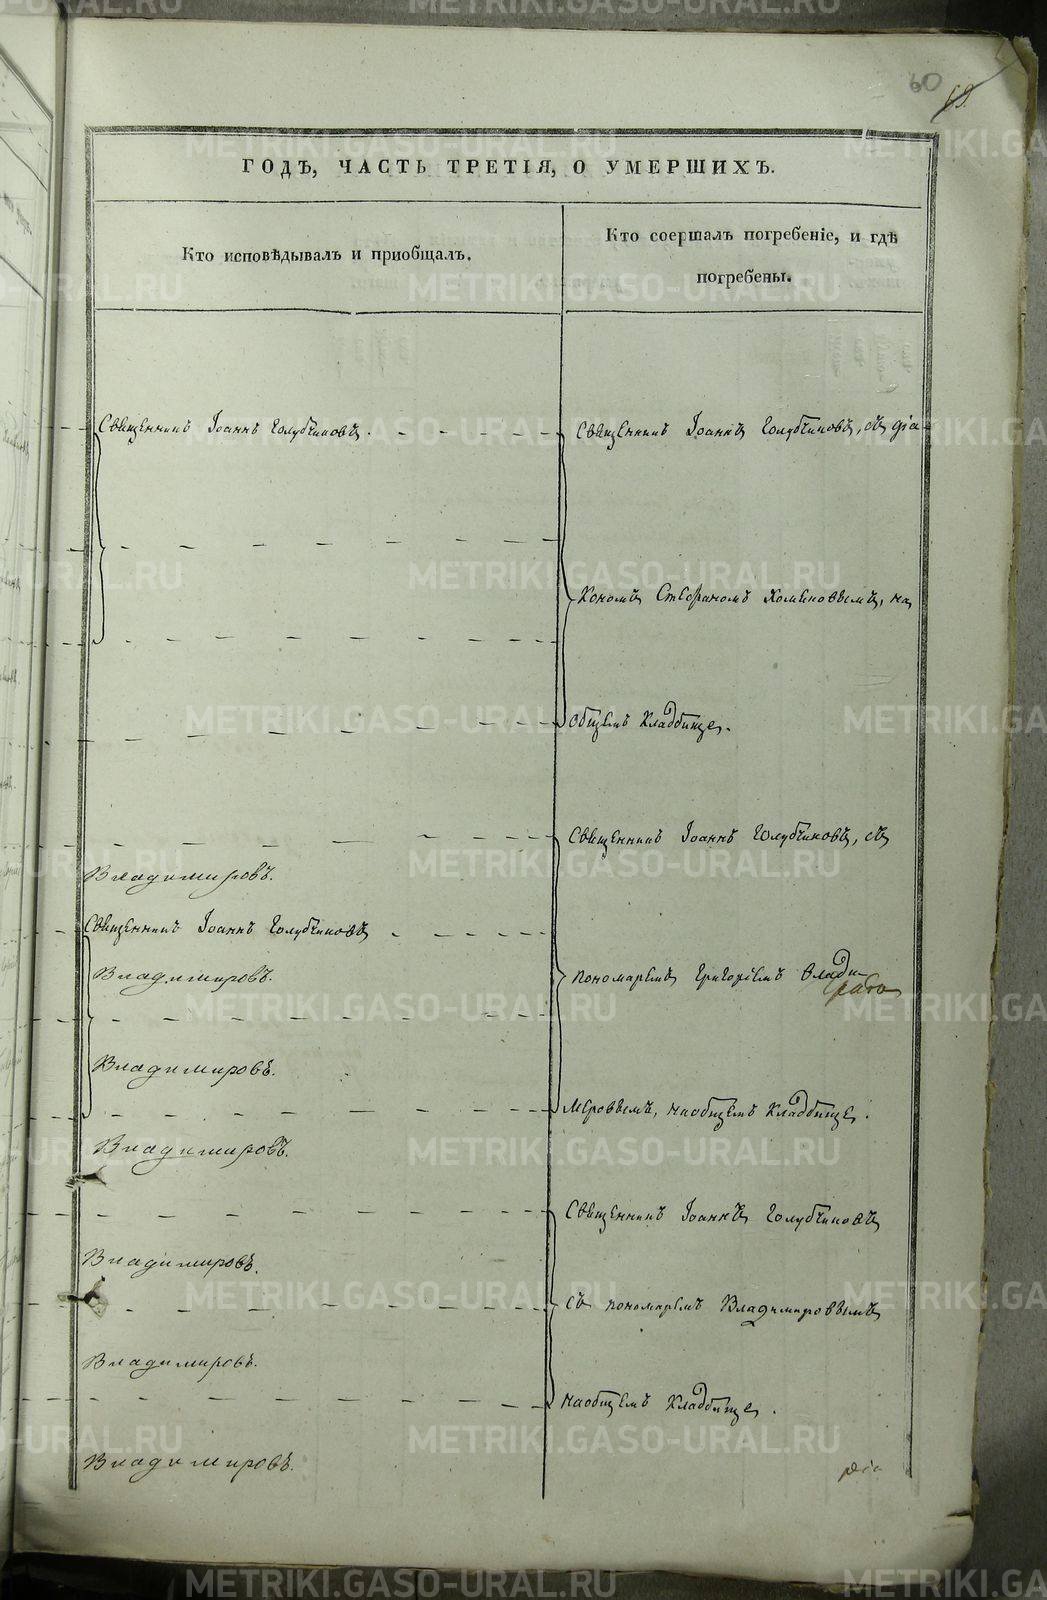 60
69.
ГОДЪ, ЧАСТЬ ТРЕТІЯ, О УМЕРШИХЪ.
Кто исповѣдывалъ и пріобщалъ.
Кто соершалъ погребеніе, и гдѣ
погребены.
Священникъ Іоаннъ Голубчиковъ.
Священникъ Іоаннъ Голубчиковъ, съ діа-
кономъ Стефаномъ Хоменовымъ, на
общемъ кладбище.
Священникъ Іоаннъ Голубчиковъ, съ
Владимировъ.
Священникъ Іоаннъ Голубчиковъ
Владимировъ.
пономаремъ Григоріемъ Влади-
Владимировъ.
меровымъ, наобщемъ кладбище.
Владимировъ.
Священникъ Іоаннъ Голубчиковъ
Владимировъ.
съ пономаремъ Владимировымъ
Владимировъ.
наобщемъ кладбище.
Владимировъ.
METRIKI.GASO-URAL.RU